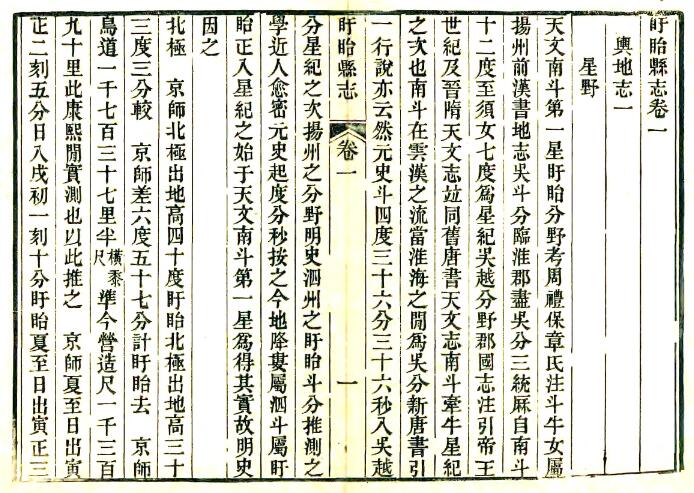 盱眙縣志卷一
輿地志一
星野
天文南斗第一星盱眙分野考周禮保章氏注斗牛女屬
揚州前漢書地志吳斗分臨淮郡盡吳分三統厤自南斗
十二度至須女七度爲星紀吳越分野郡國志注引帝王
世紀及晉隋天文志竝同舊唐書天文志南斗牽牛星紀
之次也南斗在雲漢之流當淮海之閒爲吳分新唐書引
一行說亦云然元史斗四度三十六分三十六秒入吳越
盱眙縣志 卷一 一
分星紀之次揚州之分野明史泗州之盱眙斗分推測之
學近人愈密元史起度分秒按之今地降婁屬泗斗屬盱
眙正入星紀之始于天文南斗第一星爲得其實故明史
因之
北極 京師北極出地高四十度盱眙北極出地高三十
三度三分較 京師差六度五十七分計盱眙去 京師
鳥道一千七百三十七里半橫黍尺準今營造尺一千三百
九十里此康熙閒實測也以此推之 京師夏至日出寅
正二刻五分日入戌初一刻十分盱眙夏至日出寅正三